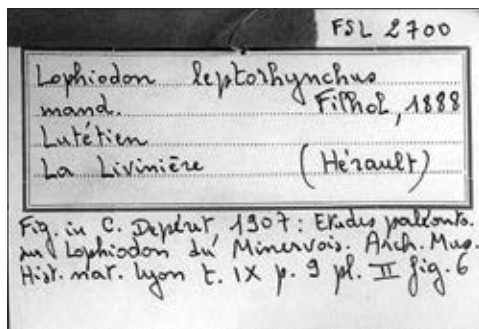 FSL 2700
Lophiodon leptorhynchus
mand. Filhol, 1888
Lutétien
La Livinière (Hérault)
Fig. in C. Depéret, 1907: Etudes paléonto.
sur Lophiodon du Minervois. Arch. Mus.
Hist. nat. Lyon t. IX p. 9 pl. II fig. 6